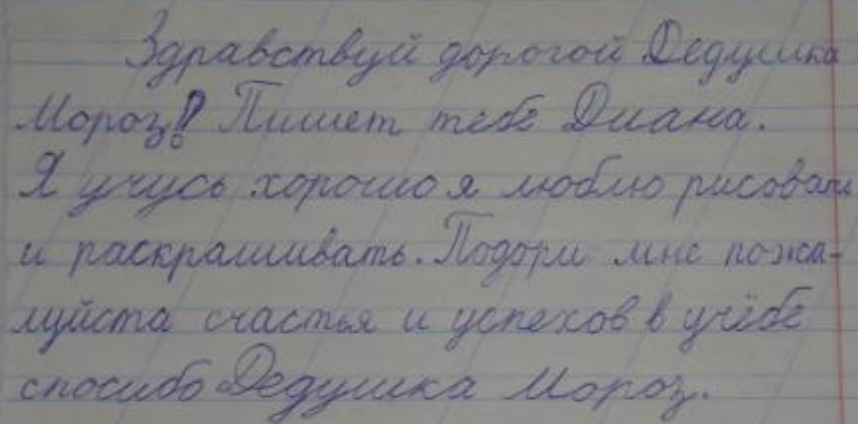 Здравствуй дорогой Дедушка
Мороз! Пишет тебе Диана.
Я учусь хорошо я люблю рисовать
и раскрашивать. Подори мне пожа-
луйста счастья и успехов в учёбе
спосибо Дедушка Мороз.